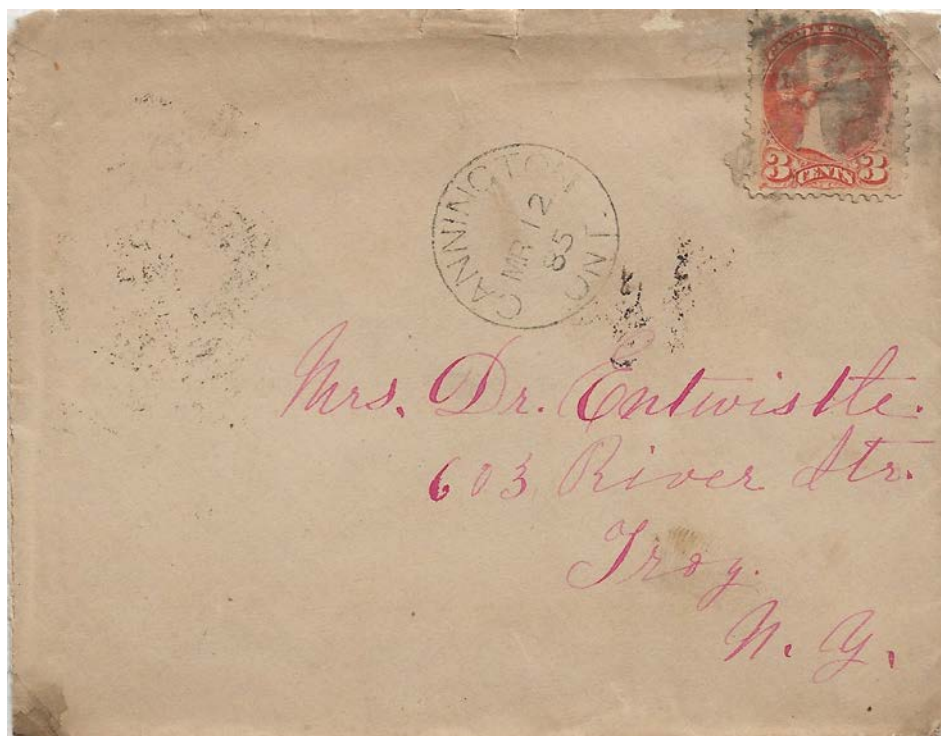 3 CENTS 3
CANNINGTON ONT.
MR 12
85
Mrs. Dr. Entwistle.
603 River Str.
Troy.
N. Y.